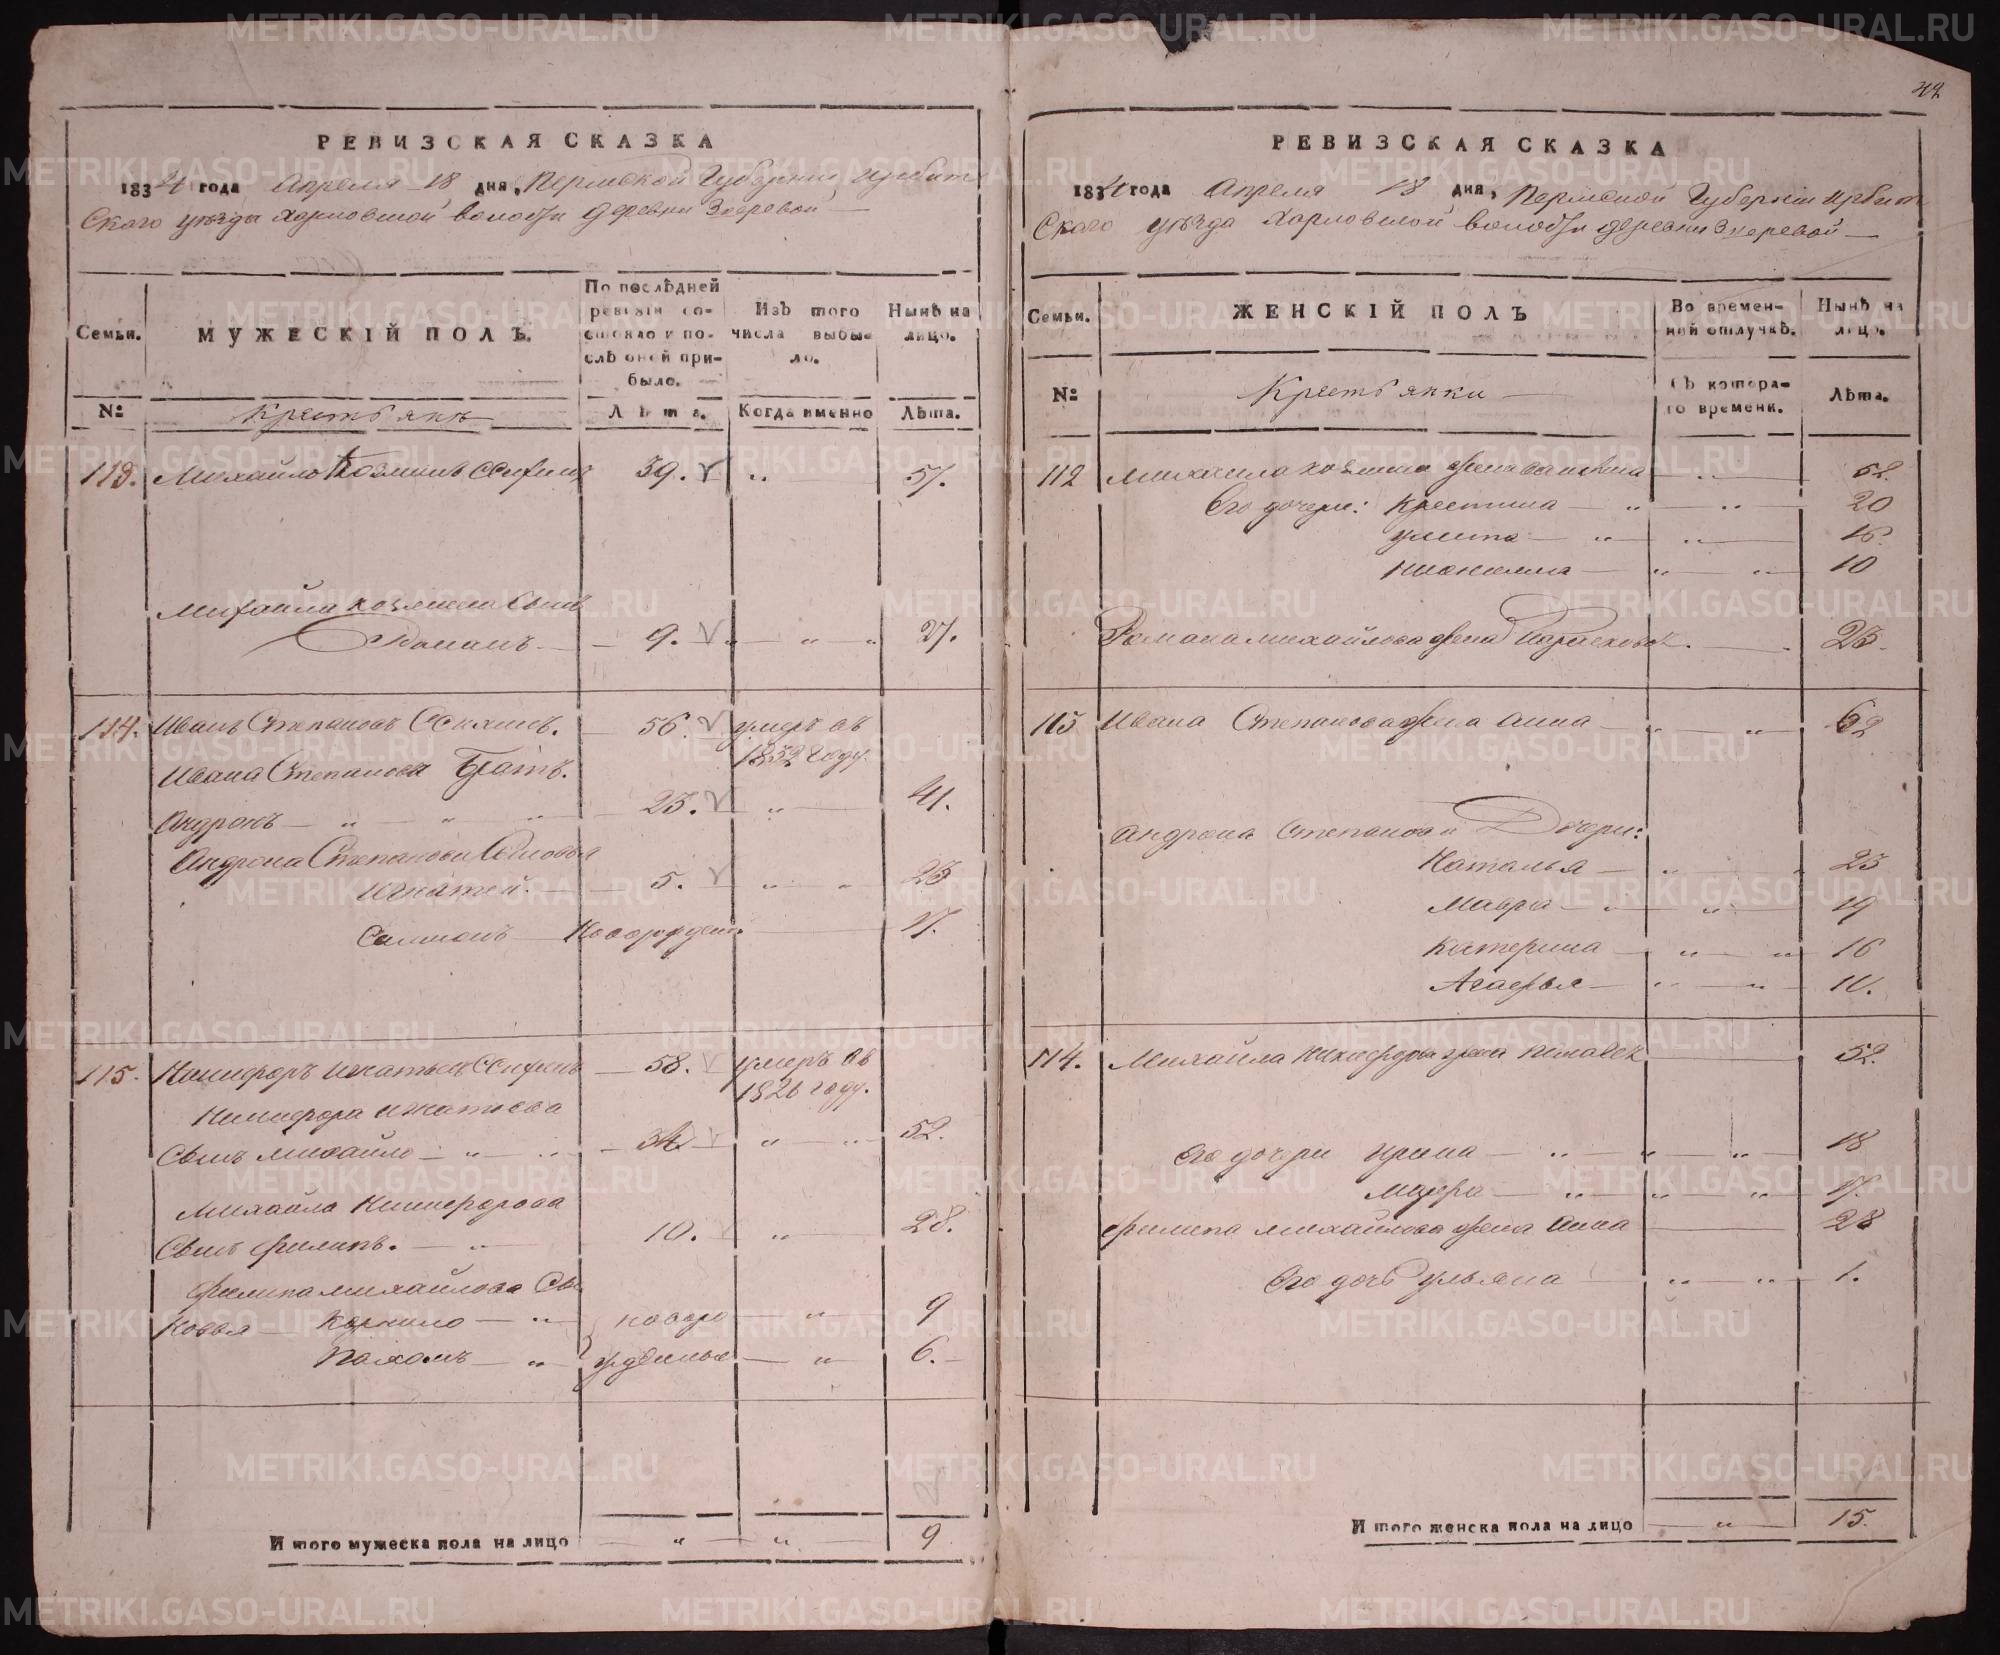 42
РЕВИЗСКАЯ СКАЗКА
1834 года Апреля 18 дня, Пермской Губернии Ирбит
Скаго уезда Харловской волости деревни
Семьи.
МУЖЕСКІЙ ПОЛЪ.
По послѣдней ревизіи состояло и послѣ оней прибыло.
Изъ того числа выбыло.
Нынѣ на лицо.
№
Крестьянъ
Лѣта.
Когда именно
Лѣта.
113. Михайло Козминъ 39. 57.
Михайла Козмина Сынъ
Романъ 9. 27.
114. Иванъ Степановъ 56. умеръ въ
1832 году.
Ивана Степанова Братъ.
Андронъ 23. 41.
Андрона Степанова Сыновья
Игнатей 5. 23
Самсонъ Новорожден. 17.
115. Никифоръ Игнатьевъ 58. умеръ въ
1826 году.
Никифора Игнатьева
Сынъ Михайло 34 52.
Михайла Никифорова
Сынъ Филипъ. 10. 28.
Филипа Михайлова Сы
новья Корнило новоро 9
Пахомъ жденные 6.
Итого мужеска пола на лицо 9
РЕВИЗСКАЯ СКАЗКА
1834 года Апреля 18 дня, Пермской Губерніи Ирбит
Скаго уѣзда Харловской волости деревни
Семьи.
ЖЕНСКІЙ ПОЛЪ
Во временной отлучкѣ.
Нынѣ на лицо.
№
Крестьянки
Съ котораго времени.
Лѣта.
112 Михаила Козмина жена 58.
Его дочери: Крестина 20
Улита 16.
10
Романа Михайлова жена Парасковья. 23.
115 Ивана Степанова жена Анна 62
Андрона Степанова Дочери:
Наталья 23
Мавра 19
Катерина 16
Агафья 10.
114. Михаила Никифорова жена 52.
Его дочери Ирина 18
17.
Филипа Михайлова жена Анна 28
Его дочь Ульяна 1.
Итого женска пола на лицо 15.
METRIKI.GASO-URAL.RU